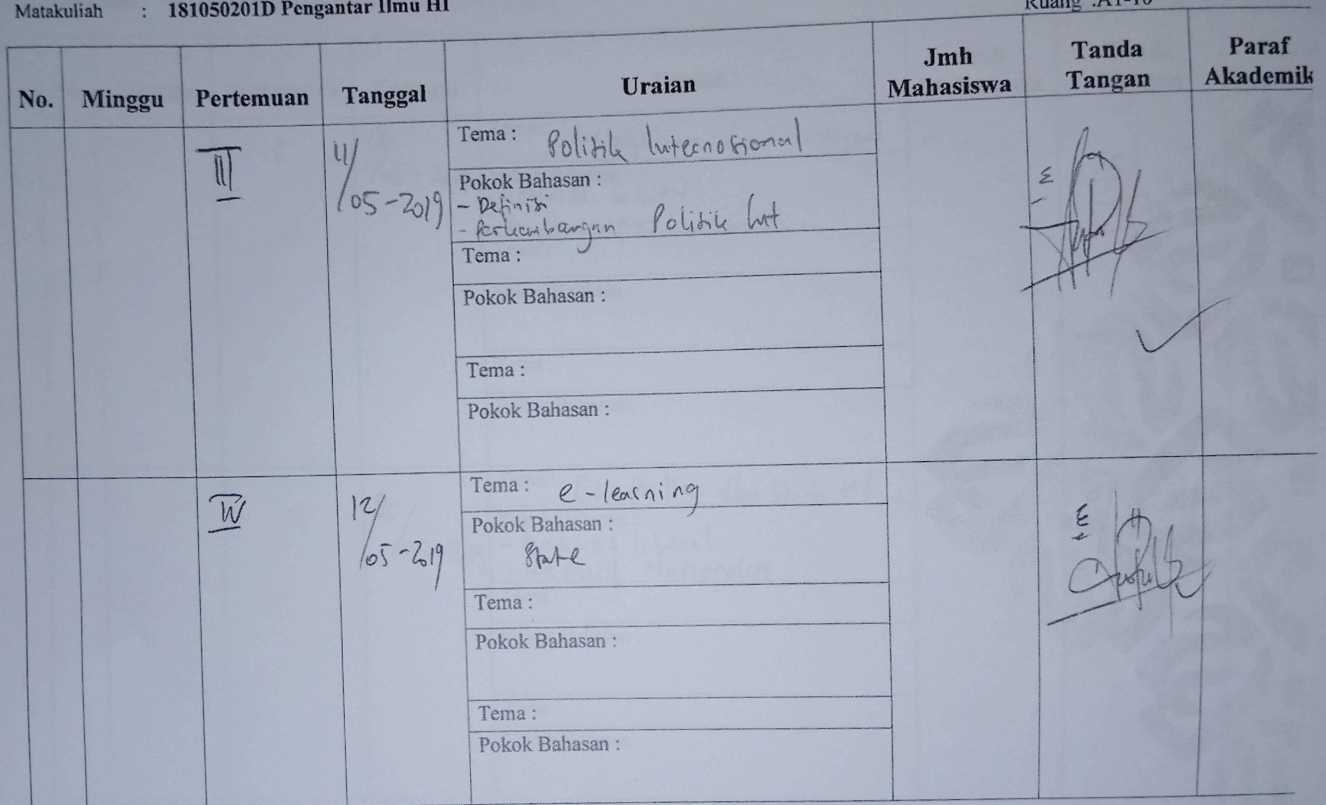 Matakuliah : 181050201D Pengantar Ilmu HI
Ruang :A1-10
No. Minggu Pertemuan Tanggal Uraian Jmh Mahasiswa Tanda Tangan Paraf Akademik
III
11/05-2019
Tema : Politik Internasional
Pokok Bahasan :
- Definisi
- Perkembangan Politik Int
Tema :
Pokok Bahasan :
Tema :
Pokok Bahasan :
IV
12/05-2019
Tema : e-learning
Pokok Bahasan :
State
Tema :
Pokok Bahasan :
Tema :
Pokok Bahasan :